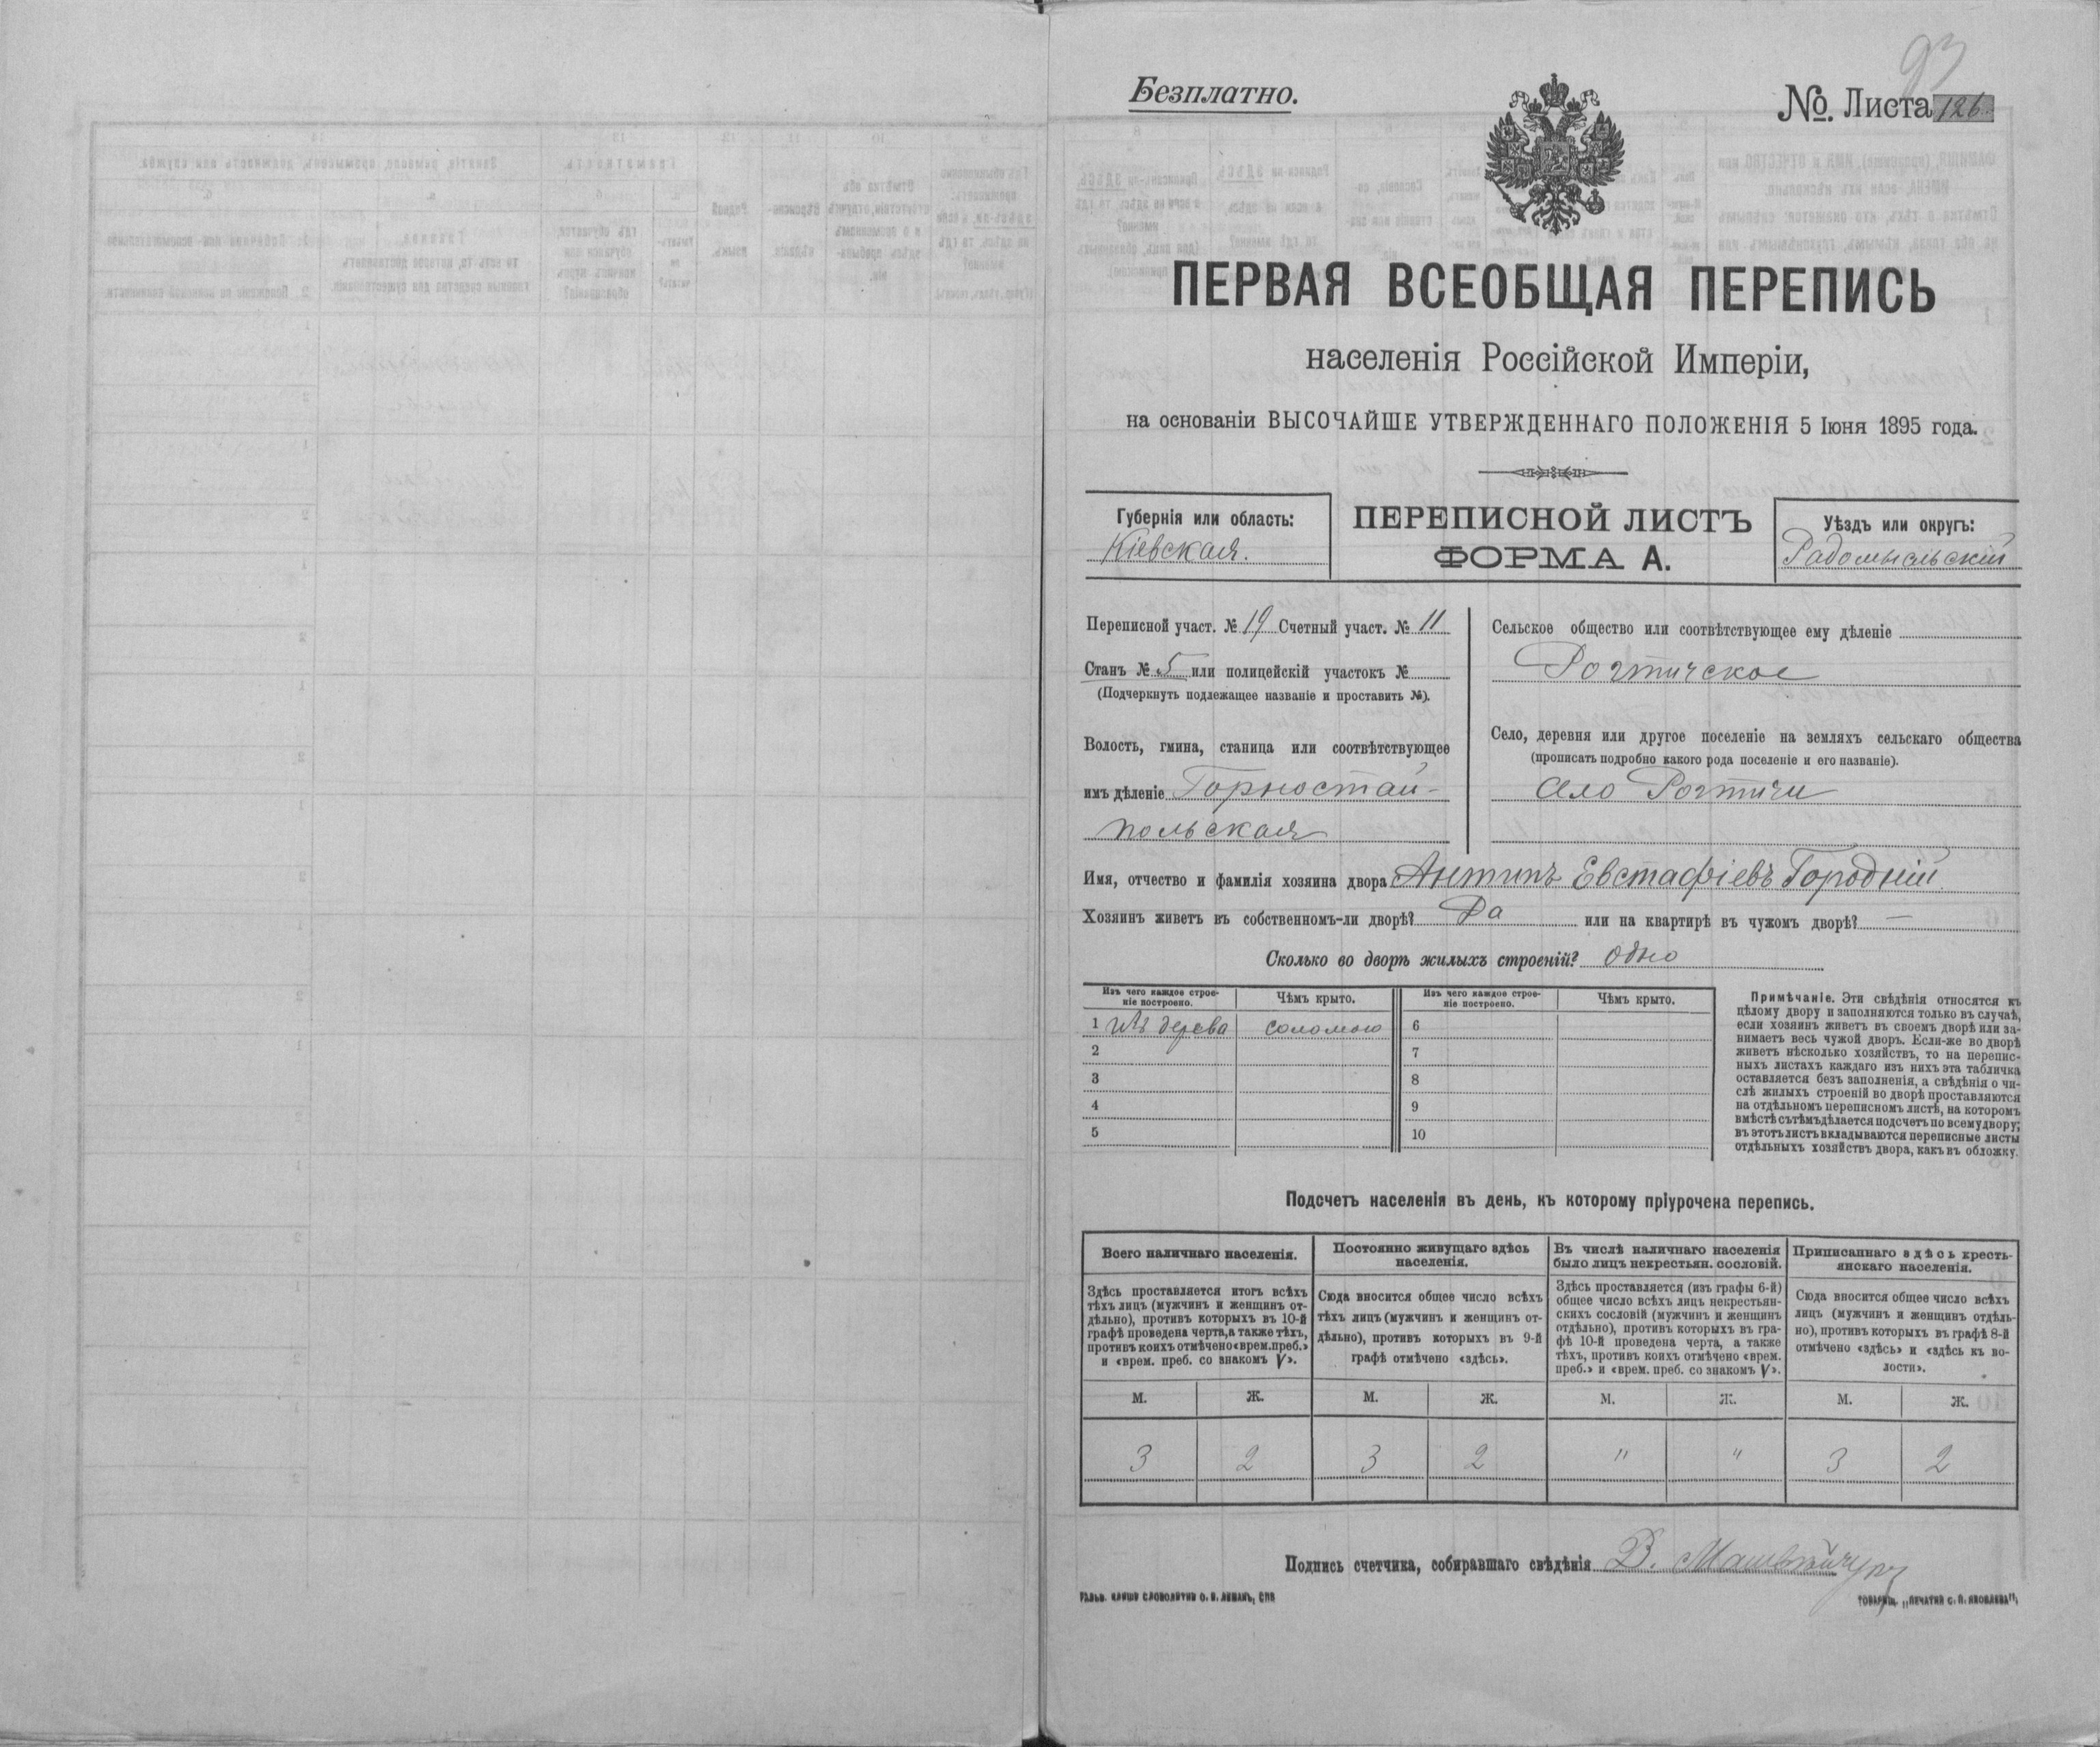 93
Безплатно.
№. Листа 126
ПЕРВАЯ ВСЕОБЩАЯ ПЕРЕПИСЬ
населенія Россійской Имперіи,
на основаніи ВЫСОЧАЙШЕ УТВЕРЖДЕННАГО ПОЛОЖЕНІЯ 5 Іюня 1895 года.
Губернія или область:
Кіевская.
ПЕРЕПИСНОЙ ЛИСТЪ
ФОРМА А.
Уѣздъ или округъ:
Радомысльскій
Переписной участ. № 19 Счетный участ. № 11
Станъ № 5 или полицейскій участокъ №
(Подчеркнуть подлежащее названіе и проставить №).
Волость, гмина, станица или соотвѣтствующее
имъ дѣленіе Горностай-
польская
Сельское общество или соотвѣтствующее ему дѣленіе
Рогтичское
Село, деревня или другое поселеніе на земляхъ сельскаго общества
(прописать подробно какого рода поселеніе и его названіе).
село Рогтичи
Имя, отчество и фамилія хозяина двора Антипъ Евстафіевъ Городній
Хозяинъ живетъ въ собственномъ-ли дворѣ? Да или на квартирѣ въ чужомъ дворѣ? —
Сколько во дворѣ жилыхъ строеній? одно
Изъ чего каждое строе-
ніе построено.
Чѣмъ крыто.
Изъ чего каждое строе-
ніе построено.
Чѣмъ крыто.
1 изъ дерева соломою 6
2 7
3 8
4 9
5 10
Примѣчаніе. Эти свѣдѣнія относятся къ
цѣлому двору и заполняются только въ случаѣ,
если хозяинъ живетъ въ своемъ дворѣ или за-
нимаетъ весь чужой дворъ. Если-же во дворѣ
живетъ нѣсколько хозяйствъ, то на перепис-
ныхъ листахъ каждаго изъ нихъ эта табличка
оставляется безъ заполненія, а свѣдѣнія о чи-
слѣ жилыхъ строеній во дворѣ проставляются
на отдѣльномъ переписномъ листѣ, на которомъ
вмѣстѣ съ тѣмъ дѣлается подсчетъ по всему двору;
въ этотъ листъ вкладываются переписные листы
отдѣльныхъ хозяйствъ двора, какъ въ обложку.
Подсчетъ населенія въ день, къ которому пріурочена перепись.
Всего наличнаго населенія.
Здѣсь проставляется итогъ всѣхъ
тѣхъ лицъ (мужчинъ и женщинъ от-
дѣльно), противъ которыхъ въ 10-й
графѣ проведена черта, а также тѣхъ,
противъ коихъ отмѣчено «врем. преб.»
и «врем. преб. со знакомъ V».
Постоянно живущаго здѣсь
населенія.
Сюда вносится общее число всѣхъ
тѣхъ лицъ (мужчинъ и женщинъ от-
дѣльно), противъ которыхъ въ 9-й
графѣ отмѣчено «здѣсь».
Въ числѣ наличнаго населенія
было лицъ некрестьян. сословій.
Здѣсь проставляется (изъ графы 6-й)
общее число всѣхъ лицъ некрестьян-
скихъ сословій (мужчинъ и женщинъ
отдѣльно), противъ которыхъ въ гра-
фѣ 10-й проведена черта, а также
тѣхъ, противъ коихъ отмѣчено «врем.
преб.» и «врем. преб. со знакомъ V».
Приписаннаго здѣсь кресть-
янскаго населенія.
Сюда вносится общее число всѣхъ
лицъ (мужчинъ и женщинъ отдѣль-
но), противъ которыхъ въ графѣ 8-й
отмѣчено «здѣсь» и «здѣсь къ во-
лости».
М. Ж. М. Ж. М. Ж. М. Ж.
3 2 3 2 " " 3 2
Подпись счетчика, собиравшаго свѣдѣнія В.
СЛОВОЛИТНИ О. И. ЛЕМАНЪ, СПБ
ТОВАРИЩ. „ПЕЧАТНЯ С. П. ЯКОВЛЕВА",